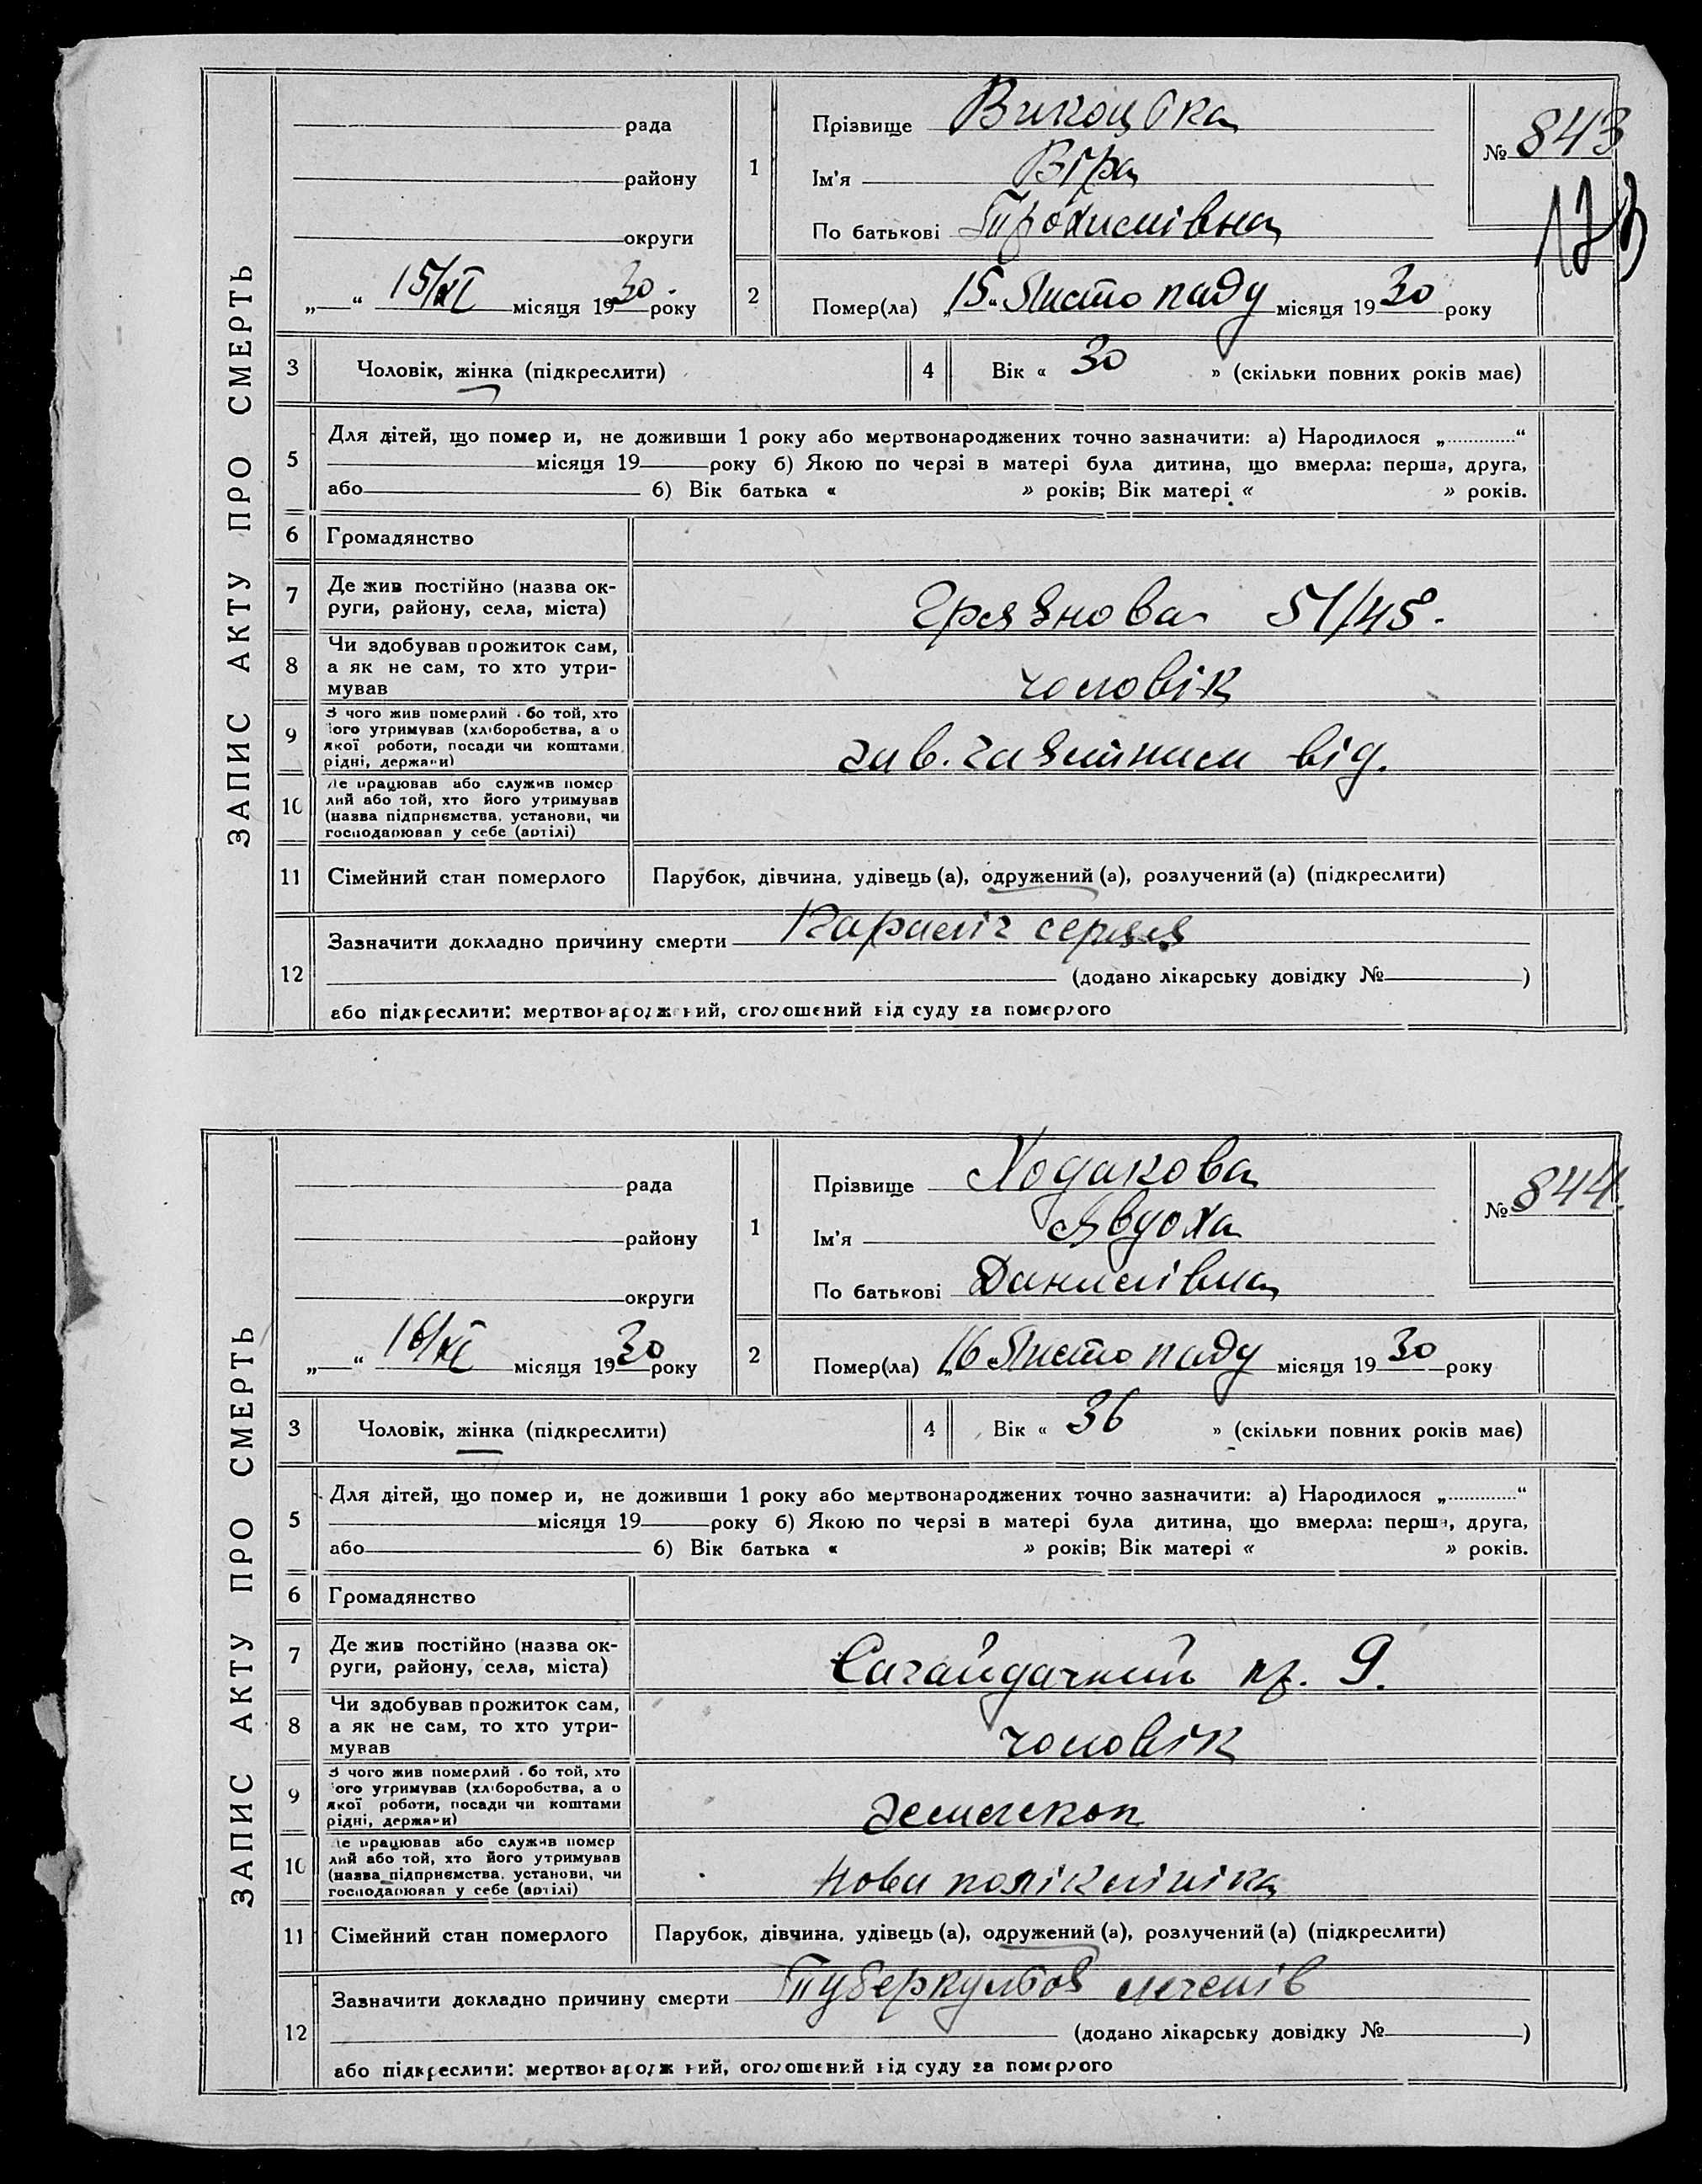 ЗАПИС АКТУ ПРО СМЕРТЬ
рада
району
округи
„ “ 15/XI місяця 1930 року
1
Прізвище
Ім'я Віра
По батькові Трохимівна
№ 843
2
Помер(ла) „15“ Листопаду місяця 1930 року
3 Чоловік, жінка (підкреслити)
4 Вік « 30 » (скільки повних років має)
5
Для дітей, що помер и, не доживши 1 року або мертвонароджених точно зазначити: а) Народилося „ “
місяця 19 року б) Якою по черзі в матері була дитина, що вмерла: перша, друга,
або б) Вік батька « » років; Вік матері « » років.
6 Громадянство
7
Де жив постійно (назва ок-
руги, району, села, міста)
Грязнова 51/45.
8
Чи здобував прожиток сам,
а як не сам, то хто утри-
мував
чоловік
9
З чого жив померлий бо той, хто
його утримував (хліборобства, а о
якої роботи, посади чи коштами
рідні, держави)
зав. від.
10
Де працював або служив помер
лий або той, хто його утримував
(назва підприємства, установи, чи
господарював у себе (артілі)
11 Сімейний стан померлого
Парубок, дівчина, удівець (а), одружений (а), розлучений (а) (підкреслити)
12
Зазначити докладно причину смерти Параліч серця
(додано лікарську довідку № )
або підкреслити: мертвонароджений, оголошений від суду за померлого
ЗАПИС АКТУ ПРО СМЕРТЬ
рада
району
округи
„ “ 16/XI місяця 1930 року
1
Прізвище Ходакова
Ім'я Явдоха
По батькові Данилівна
№ 844.
2
Помер(ла) „16 Листопаду місяця 1930 року
3 Чоловік, жінка (підкреслити)
4 Вік « 36 » (скільки повних років має)
5
Для дітей, що помер и, не доживши 1 року або мертвонароджених точно зазначити: а) Народилося „ “
місяця 19 року б) Якою по черзі в матері була дитина, що вмерла: перша, друга,
або б) Вік батька « » років; Вік матері « » років.
6 Громадянство
7
Де жив постійно (назва ок-
руги, району, села, міста)
Сагайдачний пр. 9.
8
Чи здобував прожиток сам,
а як не сам, то хто утри-
мував
чоловік
9
З чого жив померлий бо той, хто
його утримував (хліборобства, а о
якої роботи, посади чи коштами
рідні, держави)
землекоп
10
Де працював або служив помер
лий або той, хто його утримував
(назва підприємства, установи, чи
господарював у себе (артілі)
Нова полікклініка
11 Сімейний стан померлого
Парубок, дівчина, удівець (а), одружений (а), розлучений (а) (підкреслити)
12
Зазначити докладно причину смерти Туберкульоз легенів
(додано лікарську довідку № )
або підкреслити: мертвонароджений, оголошений від суду за померлого